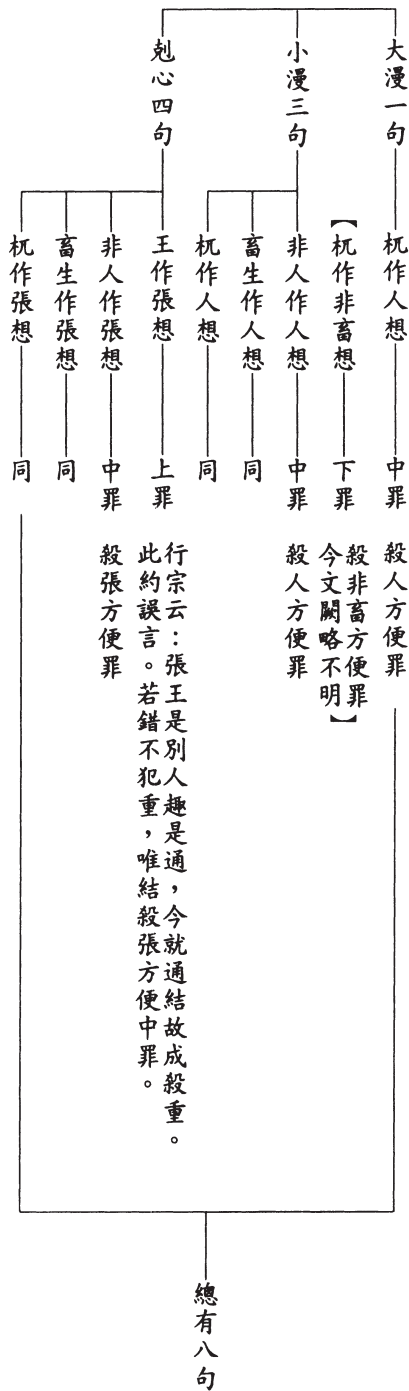 大漫一句
杌作人想
中罪
殺人方便罪
【杌作非畜想
下罪
殺非畜方便罪
今文闕略不明】
小漫三句
非人作人想
中罪
殺人方便罪
畜生作人想
同
杌作人想
同
剋心四句
王作張想
上罪
行宗云：張王是別人趣是通，今就通結故成殺重。
此約誤言。若錯不犯重，唯結殺張方便中罪。
非人作張想
中罪
殺張方便罪
畜生作張想
同
杌作張想
同
總有八句